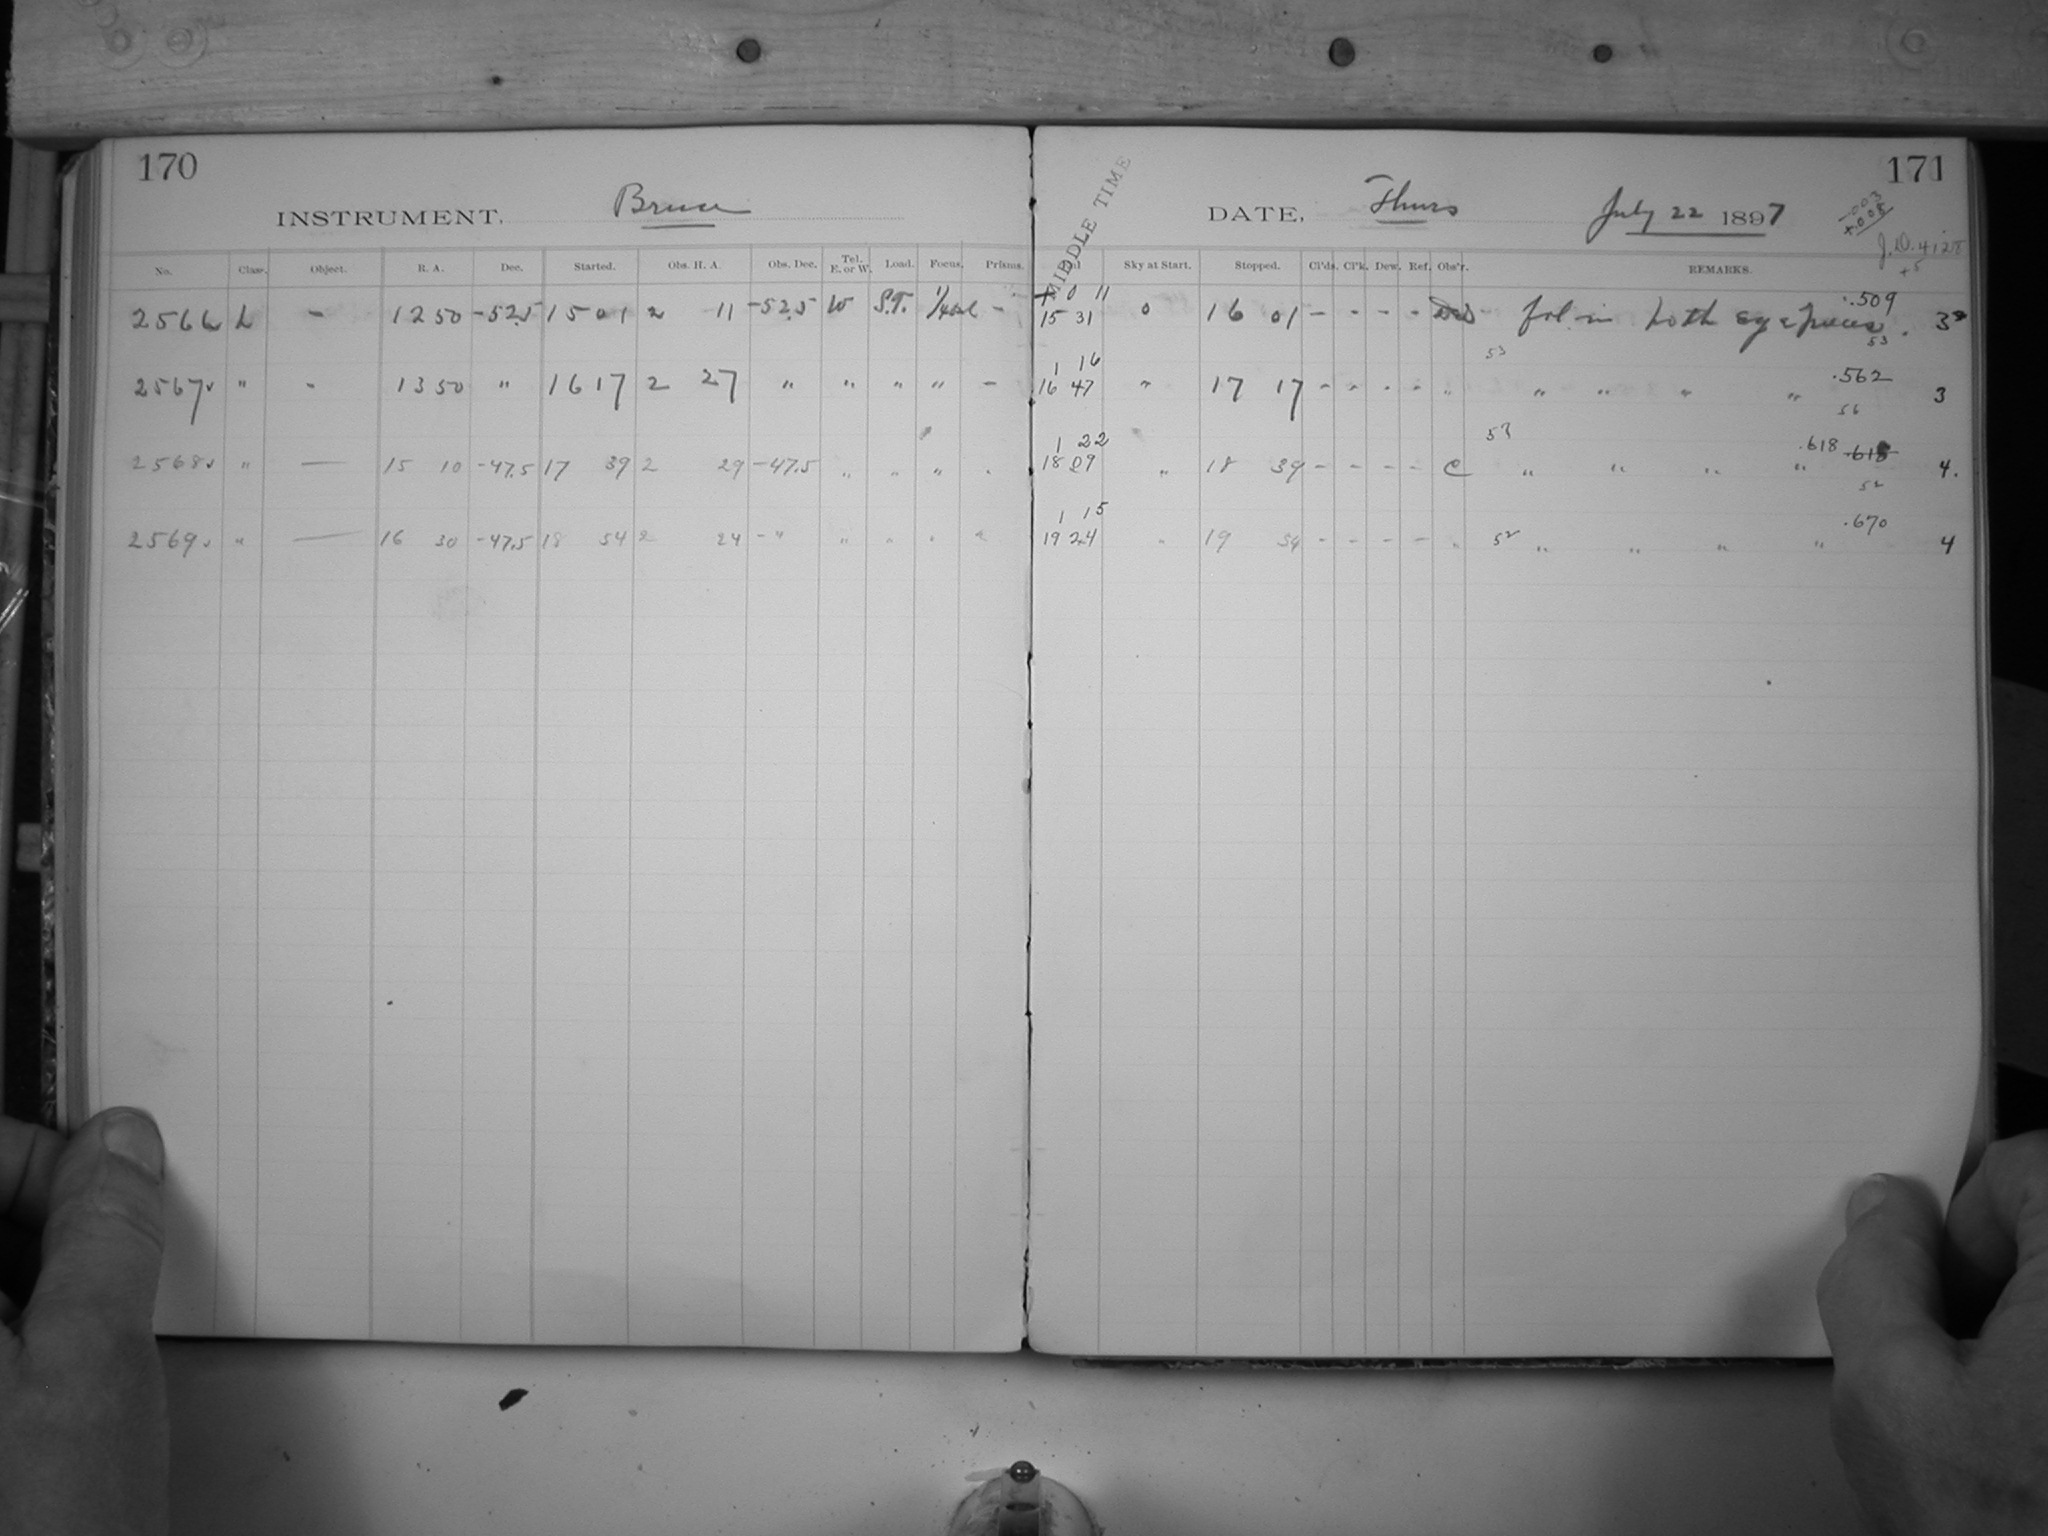 170
INSTRUMENT, Bruce
No. Class. Object. R. A. Dec. Started. Obs. H. A. Obs. Dec. Tel. E. or W. Load. Focus. Prisms.
2566 L - 12 50 -52.5 15 01 2 11 -52.5 W S.T. -
2567 " - 13 50 " 16 17 2 27 " " " " -
2568 " — 15 10 -47.5 17 39 2 29 -47.5 " " " "
2569 " — 16 30 -47.5 18 54 2 24 - " " " " "
171
MIDDLE TIME
DATE, Thurs July 22 1897
-.003
+.005
J.D. 4128
+5
Sky at Start. Stopped. Cl'ds. Cl'k. Dew. Ref. Obs'r. REMARKS.
0 11 .509
15 31 0 16 01 - - - - fol. in both eyepieces. 3
53 53
1 16 .562
16 47 " 17 17 - - - - " " " " " 3
53 56
1 22 .618 .618
18 09 " 18 39 - - - - C " " " " 4.
52
1 15 .670
19 24 " 19 54 - - - - " 52 " " " " 4